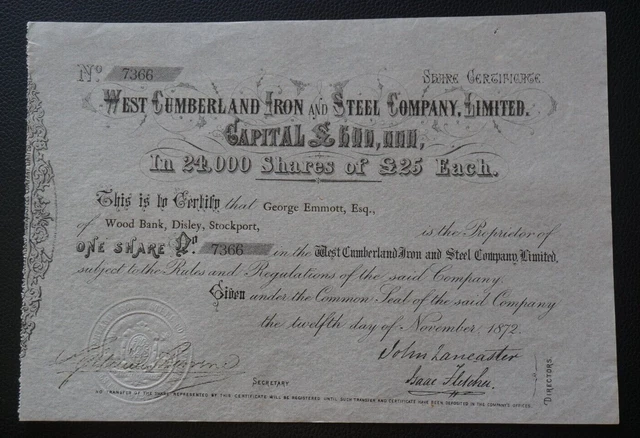 No 7366 Share Certificate
West Cumberland Iron and Steel Company, Limited.
Capital £600,000,
In 24,000 Shares of £25 Each.
This is to Certify that George Emmott, Esq.,
of Wood Bank, Disley, Stockport, is the Proprietor of
ONE SHARE No. 7366 in the West Cumberland Iron and Steel Company, Limited,
subject to the Rules and Regulations of the said Company.
Given under the Common Seal of the said Company
the twelfth day of November, 1872.
John Lancaster
Isaac Fletcher.
SECRETARY
DIRECTORS.
NO TRANSFER OF THE SHARE REPRESENTED BY THIS CERTIFICATE WILL BE REGISTERED UNTIL SUCH TRANSFER AND CERTIFICATE HAVE BEEN DEPOSITED IN THE COMPANY'S OFFICES.